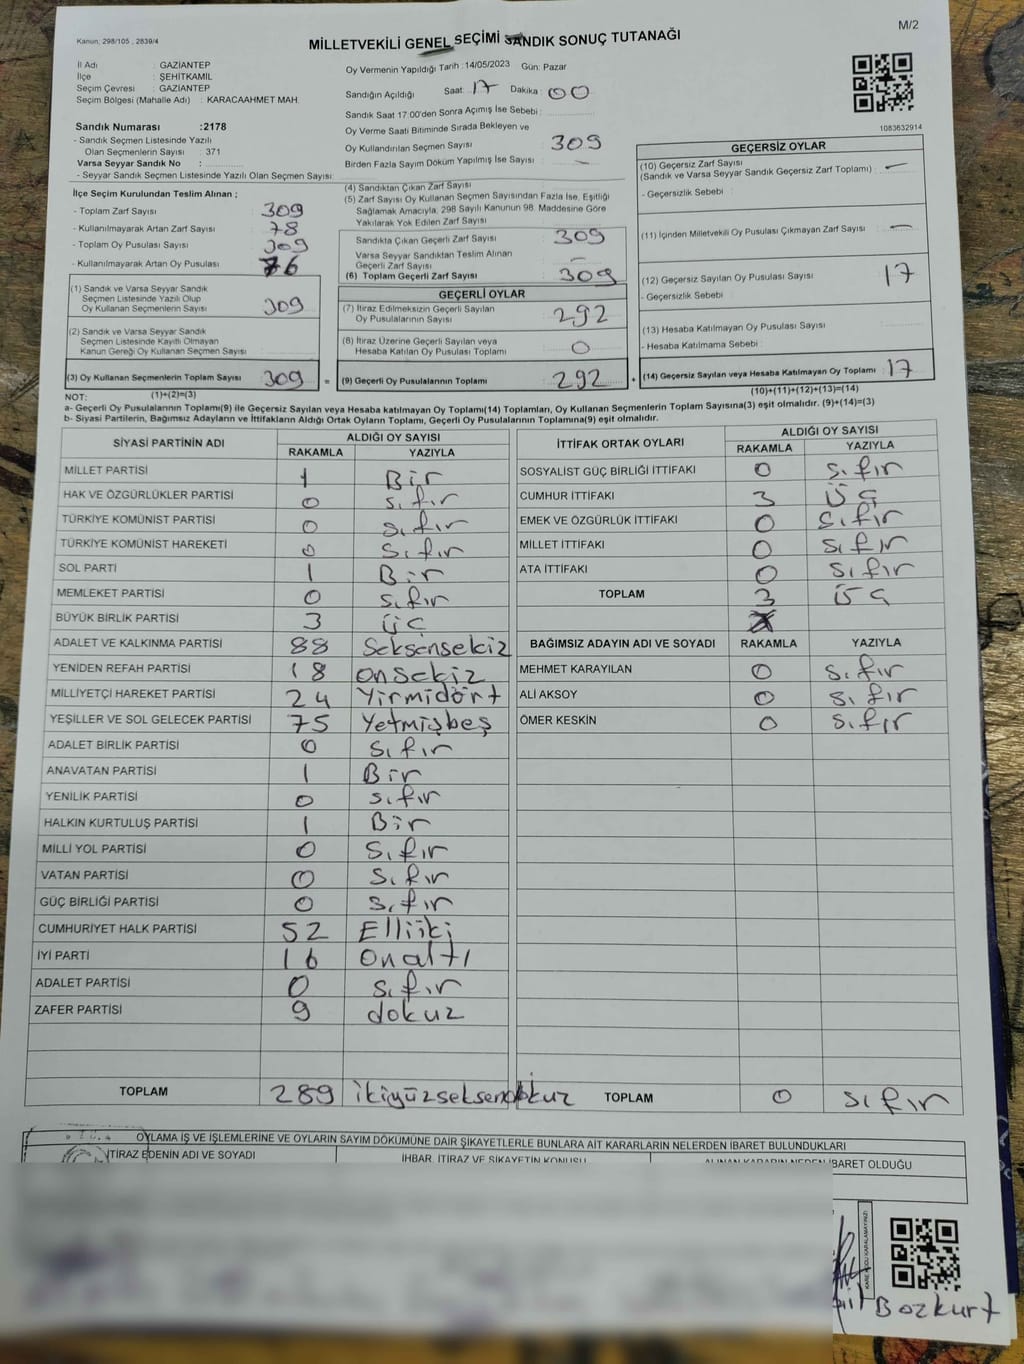 M/2
Kanun; 298/105 , 2839/4
MİLLETVEKİLİ GENEL SEÇİMİ SANDIK SONUÇ TUTANAĞI
İl Adı : GAZİANTEP
İlçe : ŞEHİTKAMİL
Seçim Çevresi : GAZİANTEP
Seçim Bölgesi (Mahalle Adı) : KARACAAHMET MAH.
Sandık Numarası :2178
- Sandık Seçmen Listesinde Yazılı
Olan Seçmenlerin Sayısı : 371
Varsa Seyyar Sandık No :
- Seyyar Sandık Seçmen Listesinde Yazılı Olan Seçmen Sayısı:
Oy Vermenin Yapıldığı Tarih :14/05/2023 Gün: Pazar
Sandığın Açıldığı Saat: 17 Dakika : 00
Sandık Saat 17:00'den Sonra Açımış İse Sebebi :
Oy Verme Saati Bitiminde Sırada Bekleyen ve
Oy Kullandırılan Seçmen Sayısı : 309
Birden Fazla Sayım Döküm Yapılmış İse Sayısı : –
1083632914
İlçe Seçim Kurulundan Teslim Alınan ;
- Toplam Zarf Sayısı : 309
- Kullanılmayarak Artan Zarf Sayısı : 78
- Toplam Oy Pusulası Sayısı : 309
- Kullanılmayarak Artan Oy Pusulası : 76
(1) Sandık ve Varsa Seyyar Sandık
Seçmen Listesinde Yazılı Olup
Oy Kullanan Seçmenlerin Sayısı : 309
(2) Sandık ve Varsa Seyyar Sandık
Seçmen Listesinde Kayıtlı Olmayan
Kanun Gereği Oy Kullanan Seçmen Sayısı :
(3) Oy Kullanan Seçmenlerin Toplam Sayısı : 309 =
(4) Sandıktan Çıkan Zarf Sayısı :
(5) Zarf Sayısı Oy Kullanan Seçmen Sayısından Fazla İse, Eşitliği
Sağlamak Amacıyla, 298 Sayılı Kanunun 98. Maddesine Göre
Yakılarak Yok Edilen Zarf Sayısı :
Sandıkta Çıkan Geçerli Zarf Sayısı : 309
Varsa Seyyar Sandıktan Teslim Alınan
Geçerli Zarf Sayısı : –
(6) Toplam Geçerli Zarf Sayısı : 309
GEÇERLİ OYLAR
(7) İtiraz Edilmeksizin Geçerli Sayılan
Oy Pusulalarının Sayısı : 292
(8) İtiraz Üzerine Geçerli Sayılan veya
Hesaba Katılan Oy Pusulası Toplamı : 0
(9) Geçerli Oy Pusulalarının Toplamı : 292 +
GEÇERSİZ OYLAR
(10) Geçersiz Zarf Sayısı
(Sandık ve Varsa Seyyar Sandık Geçersiz Zarf Toplamı) : –
- Geçersizlik Sebebi :
(11) İçinden Milletvekili Oy Pusulası Çıkmayan Zarf Sayısı : –
(12) Geçersiz Sayılan Oy Pusulası Sayısı : 17
- Geçersizlik Sebebi :
(13) Hesaba Katılmayan Oy Pusulası Sayısı :
- Hesaba Katılmama Sebebi :
(14) Geçersiz Sayılan veya Hesaba Katılmayan Oy Toplamı : 17
NOT: (1)+(2)=(3) (10)+(11)+(12)+(13)=(14)
a- Geçerli Oy Pusulalarının Toplamı(9) ile Geçersiz Sayılan veya Hesaba katılmayan Oy Toplamı(14) Toplamları, Oy Kullanan Seçmenlerin Toplam Sayısına(3) eşit olmalıdır. (9)+(14)=(3)
b- Siyasi Partilerin, Bağımsız Adayların ve İttifakların Aldığı Ortak Oyların Toplamı, Geçerli Oy Pusulalarının Toplamına(9) eşit olmalıdır.
SİYASİ PARTİNİN ADI ALDIĞI OY SAYISI
RAKAMLA YAZIYLA
MİLLET PARTİSİ 1 Bir
HAK VE ÖZGÜRLÜKLER PARTİSİ 0 sıfır
TÜRKİYE KOMÜNİST PARTİSİ 0 sıfır
TÜRKİYE KOMÜNİST HAREKETİ 0 sıfır
SOL PARTİ 1 Bir
MEMLEKET PARTİSİ 0 sıfır
BÜYÜK BİRLİK PARTİSİ 3 üç
ADALET VE KALKINMA PARTİSİ 88 Seksensekiz
YENİDEN REFAH PARTİSİ 18 onsekiz
MİLLİYETÇİ HAREKET PARTİSİ 24 Yirmidört
YEŞİLLER VE SOL GELECEK PARTİSİ 75 Yetmişbeş
ADALET BİRLİK PARTİSİ 0 sıfır
ANAVATAN PARTİSİ 1 Bir
YENİLİK PARTİSİ 0 sıfır
HALKIN KURTULUŞ PARTİSİ 1 Bir
MİLLİ YOL PARTİSİ 0 sıfır
VATAN PARTİSİ 0 sıfır
GÜÇ BİRLİĞİ PARTİSİ 0 sıfır
CUMHURİYET HALK PARTİSİ 52 Elliiki
İYİ PARTİ 16 Onaltı
ADALET PARTİSİ 0 sıfır
ZAFER PARTİSİ 9 dokuz
TOPLAM 289 ikiyüzseksendokuz
İTTİFAK ORTAK OYLARI ALDIĞI OY SAYISI
RAKAMLA YAZIYLA
SOSYALİST GÜÇ BİRLİĞİ İTTİFAKI 0 sıfır
CUMHUR İTTİFAKI 3 Üç
EMEK VE ÖZGÜRLÜK İTTİFAKI 0 sıfır
MİLLET İTTİFAKI 0 sıfır
ATA İTTİFAKI 0 sıfır
TOPLAM 3 Üç
BAĞIMSIZ ADAYIN ADI VE SOYADI RAKAMLA YAZIYLA
MEHMET KARAYILAN 0 sıfır
ALİ AKSOY 0 sıfır
ÖMER KESKİN 0 sıfır
TOPLAM 0 sıfır
OYLAMA İŞ VE İŞLEMLERİNE VE OYLARIN SAYIM DÖKÜMÜNE DAİR ŞİKAYETLERLE BUNLARA AİT KARARLARIN NELERDEN İBARET BULUNDUKLARI
İTİRAZ EDENİN ADI VE SOYADI İHBAR, İTİRAZ VE ŞİKAYETİN KONUSU ALINAN KARARIN NEDEN İBARET OLDUĞU
Bozkurt